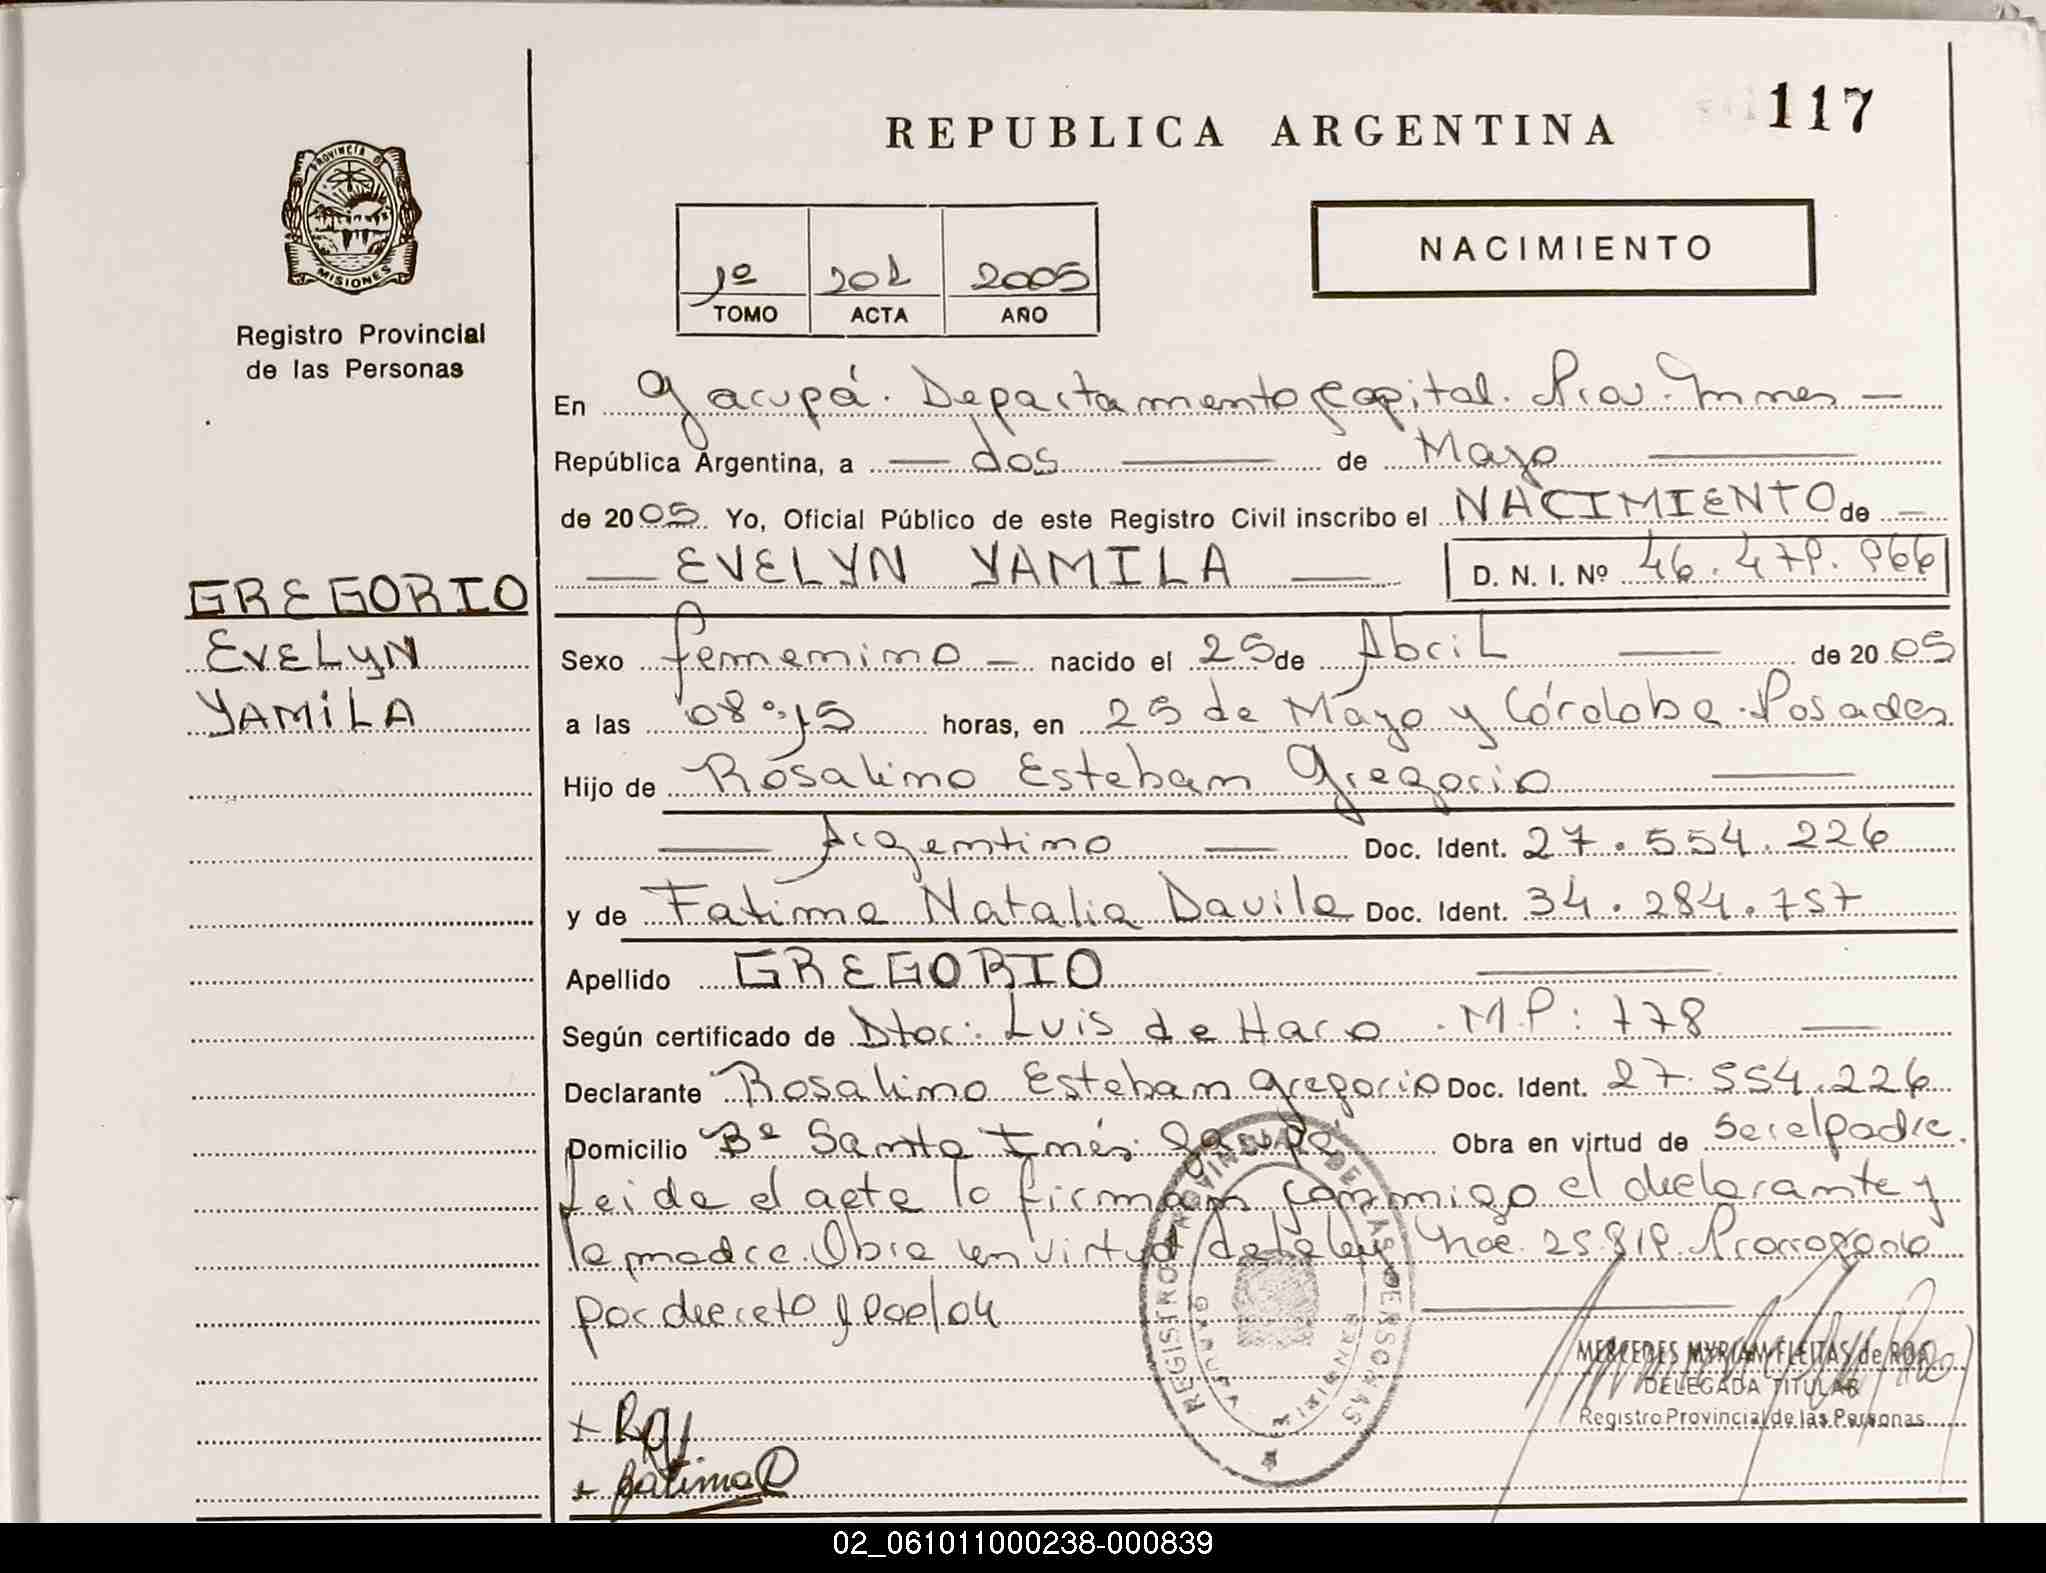 117
REPUBLICA ARGENTINA
PROVINCIA DE
MISIONES
Registro Provincial
de las Personas
NACIMIENTO
1º 201 2005
TOMO ACTA AÑO
En Garupá. Departamento Capital. Prov. Mnes —
República Argentina, a — dos — de Mayo —
de 2005 Yo, Oficial Público de este Registro Civil inscribo el NACIMIENTO de —
— EVELYN YAMILA — D. N. I. Nº 46.479.966
GREGORIO
EVELYN
YAMILA
Sexo femenino — nacido el 25 de Abril — de 2005
a las 08:15 horas, en 25 de Mayo y Córdoba. Posadas
Hijo de Rosalino Esteban Gregorio —
— Argentino — Doc. Ident. 27.554.226
y de Fatima Natalia Davila Doc. Ident. 34.284.757
Apellido GREGORIO —
Según certificado de Dtor: Luis de Haro. M.P: 778 —
Declarante Rosalino Esteban Gregorio Doc. Ident. 27.554.226
Domicilio Bº Santa Inés. Garupá Obra en virtud de Ser el padre.
Leida el acta la firman conmigo el declarante y
la madre. Obra en virtud de la ley 25.819. Prorrogada
por decreto
REGISTRO PROVINCIAL DE LAS PERSONAS
GARUPA
MERCEDES MYRIAM FLEITAS de ROA
DELEGADA TITULAR
Registro Provincial de las Personas
+ RG
+ fatima D
02_061011000238-000839